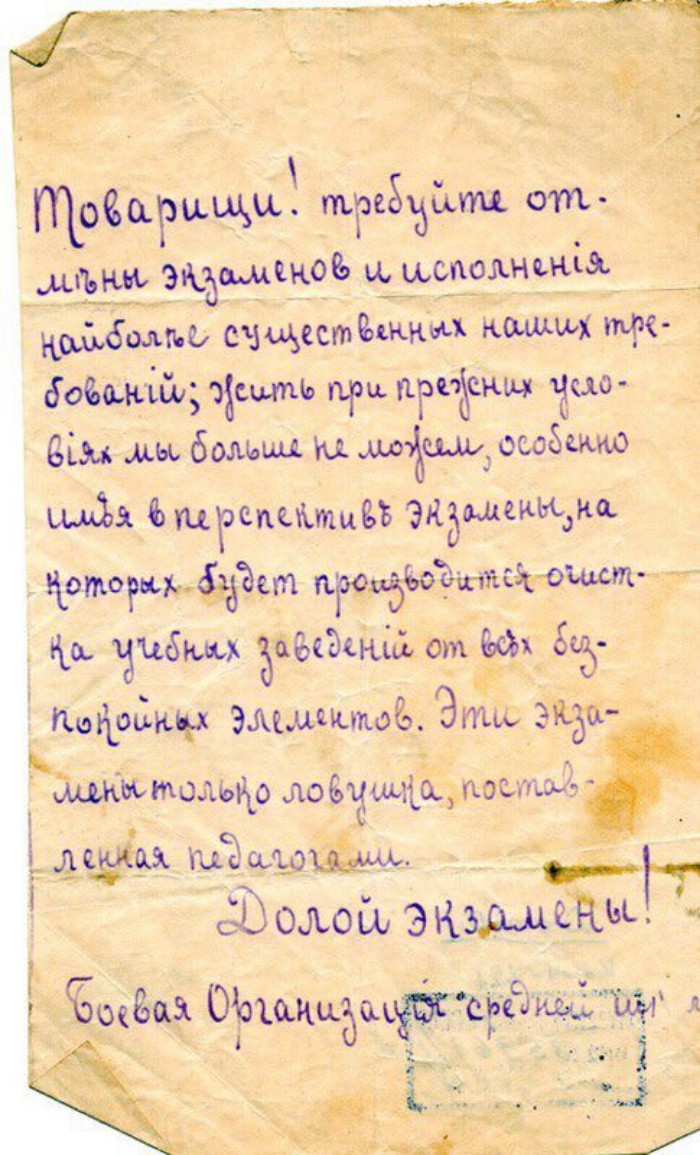 Товарищи! требуйте от-
мѣны экзаменов и исполненія
наиболѣе существенных наших тре-
бованій; жить при прежних усло-
віях мы больше не можем, особенно
имѣя в перспективѣ экзамены, на
которых будет производится очист-
ка учебных заведеній от всѣх без-
покойных элементов. Эти экза-
мены только ловушка, постав-
ленная педагогами.
Долой экзамены!
Боевая Организація средней